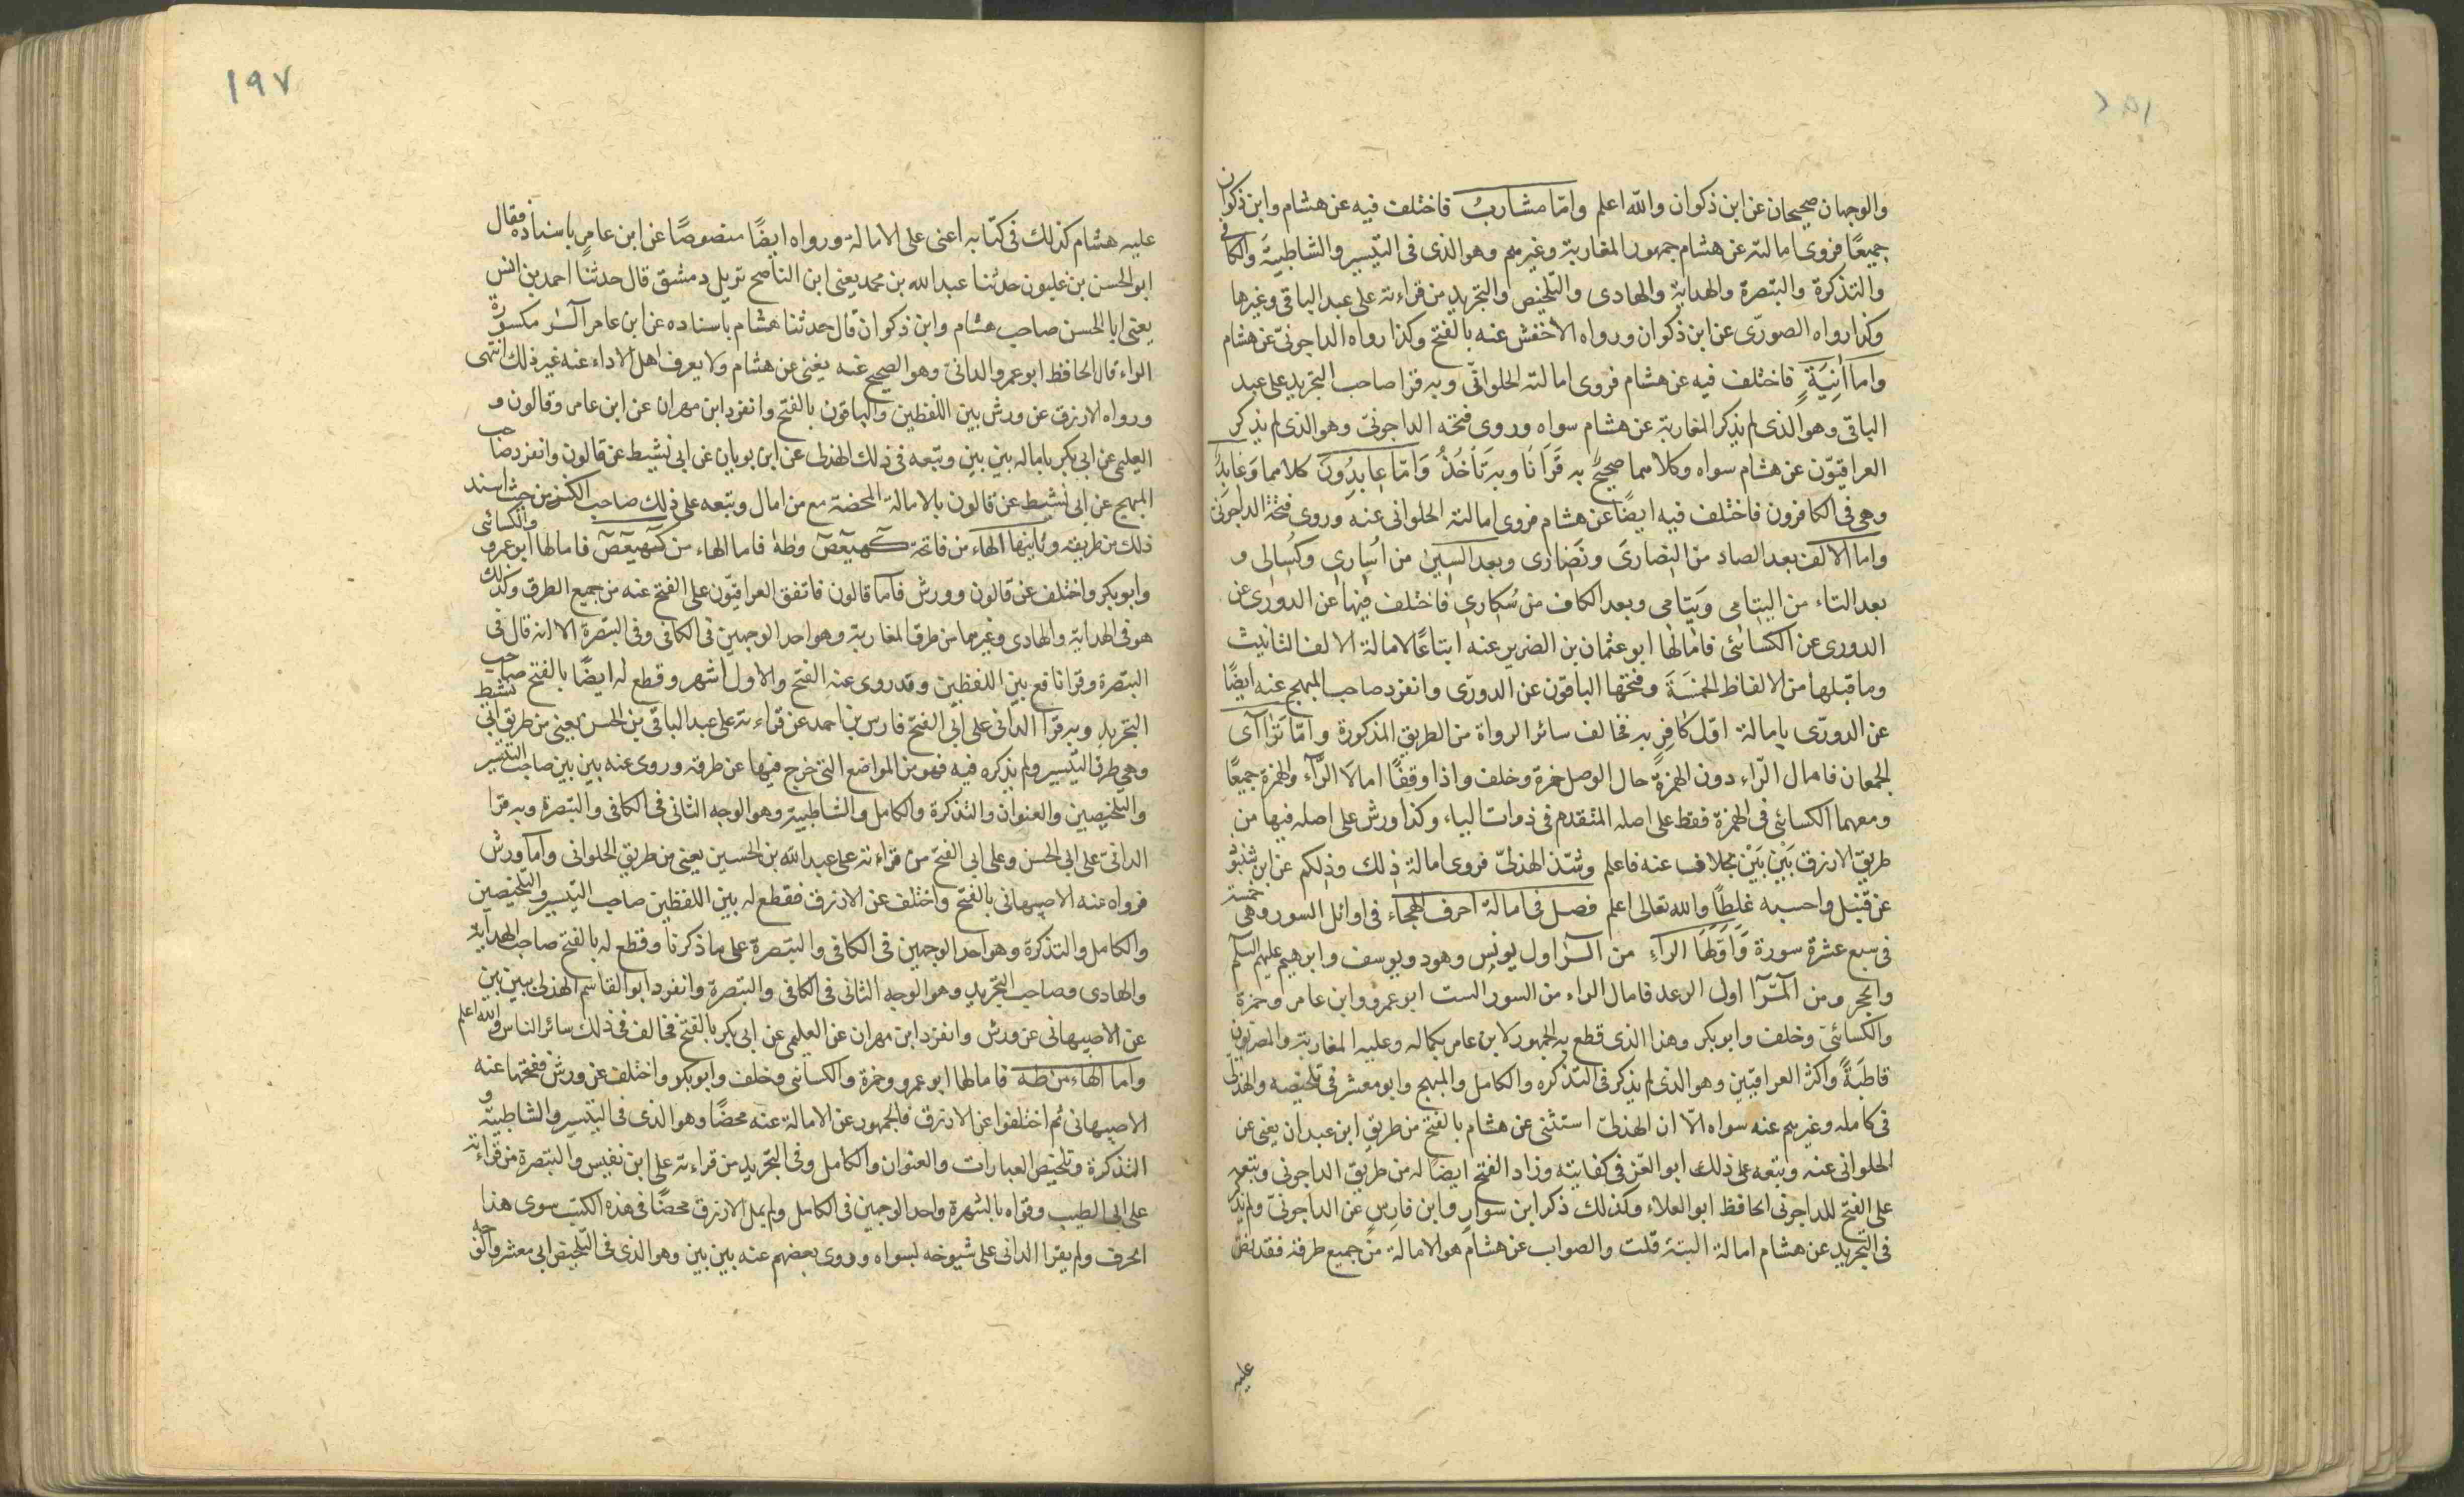 والوجهان صحيحان عن ابن ذكوان والله اعلم وامّا مشارب فاختلف فيه عن هشام وابن ذكوان
جميعًا فروى امالته عن هشام جمهور المغاربة وغيرهم وهو الذى فى التيسير والشاطبية والكافى
والتذكرة والتبصرة والهداية والهادى والتلخيص والتجريد من قراءته على عبد الباقى وغيرها
وكذا رواه الصورى عن ابن ذكوان ورواه الأخفش عنه بالفتح وكذا رواه الداجونى عن هشام
واما آنِيَةٍ فاختلف فيه عن هشام فروى امالته الحلوانى وبه قرا صاحب التجريد على عبد
الباقى وهو الذى لم يذكر المغاربة عن هشام سواه وروى فتحه الداجونى وهو الذى لم يذكر
العراقيّون عن هشام سواه وكلاهما صحيح به قَرَأنَا وبه نَأخُذُ وَامّا عابِدُونَ كلاهما وَعَابِدٌ
وهى فى الكافرون فاختلف فيه ايضًا عن هشام فروى امالته الحلوانى عنه وروى فتحه الداجونى
واما الالف بعد الصاد من النصارى ونصارى وبعد السين من اُسارى وكسالى و
بعد التاء من اليتامى وَيتامى وبعد الكاف من سُكارى فاختلف فيها عن الدورى عن
الدورى عن الكسائى فامالها ابو عثمان بن الضرير عنه اتباعًا لامالة الالف التانيث
وما قبلها من الالفاظ الخمسَةَ وفتحها الباقون عن الدورى وانفرد صاحب المبهج عنه ايضًا
عن الدورى بامالة اوّل كافِرٍ به فخالف سائر الرواة من الطريق المذكورة وامّا تَرٰاآى
الجمعان فامال الرّاء دون الهمزةٍ حال الوصل حمزة وخلف واذا وقفًا امالَا الرّآء والهمزة جميعًا
ومعهما الكسائى فى الهمزة فقط على اصله المتقدم فى ذوات الياء وكذا ورش على اصله فيها من
طريق الازرق بَيْنَ بَيْنَ بخلاف عنه فاعلم وشذ الهذلىّ فروى امالة ذٰلك وذٰلكم عن ابن شنبوذ
عن قنبل واحسبه غلطًا والله تعالى اعلم فصل فى امالة احرف الهجاء فى اوائل السور وهى خمسة
فى سبع عشرة سورة وَاَوَّلها الراء من الٓرٰ اول يونس وهود ويوسف وابرهيم عليهم السلام
والحجر ومن الٓمٓرٰ اول الرعد فامال الراء من السور الست ابو عمرو وابن عامر وحمزة
والكسائى وخلف وابو بكر وهذا الذى قطع به الجمهور لابن عامر بكماله وعليه المغاربة والمصريون
قاطبَةً واكثر العراقيّين وهو الذى لم يذكر فى التذكره والكامل والمبهج وابو معشر فى تلخيصه والهذلى
فى كامله وغيرهم عنه سواه الّا ان الهذلى استثنى عن هشام بالفتح من طريق ابن عبدان يعنى عن
الحلوانى عنه وتبعه على ذلك ابو العز فى كفايته وزاد الفتح ايضًا له من طريق الداجونى وتبعه
على الفتح للداجونى الحافظ ابو العلاء وكذلك ذكر ابن سوار وابن فارس عن الداجونى ولم يذكر
فى التجريد عن هشام امالة البتة قلت والصواب عن هشام هو الامالة من جميع طرقه فقد نصّ
عليه
١٩٧
عليه هشام كذلك فى كتابه اعنى على الامالة ورواه ايضًا منصوصًا عن ابن عامر باسناده فقال
ابو الحسن بن غلبون حدثنا عبد الله بن محمد يعنى ابن الناصح نزيل دمشق قال حدثنا احمد بن انس
يعنى ابا الحسن صاحب هشام وابن ذكوان قال حدثنا هشام باسناده عن ابن عامر الٓرٰ مكسورة
الراء قال الحافظ ابو عمرو الدانى وهو الصحيح عنه يعنى عن هشام ولا يعرف اهل الاداء عنه غير ذلك انتهى
ورواه الازرق عن ورش بين اللفظين والباقون بالفتح وانفرد ابن مهران عن ابن عامر وقالون و
العليمى عن ابى بكر بامالة بين بين وتبعه فى ذلك الهذلى عن ابن بويان عن ابى نشيط عن قالون وانفرد صاحب
المبهج عن ابى نشيط عن قالون بالامالة المحضة مع من امال وتبعه على ذلك صاحب الكنز من حيث اسند
ذلك من طريقه وثانيها الهاء من فاتحة كٓهيعٓصٓ وطهٰ فاما الهاء من كٓهيعٓصٓ فامالها ابو عمرو والكسائى
وابو بكر واختلف عن قالون وورش فاما قالون فاتفق العراقيّون على الفتح عنه من جميع الطرق وكذلك
هو فى الهداية والهادى وغيرهما من طرق المغاربة وهو احد الوجهين فى الكافى وفى التبصرة الا انه قال فى
التبصرة وقرا نافع بين اللفظين وقد روى عنه الفتح والاول اشهر وقطع له ايضًا بالفتح صاحب
التجريد وبه قرا الدانى على ابى الفتح فارس بن احمد عن قراءته على عبد الباقى بن الحسن يعنى من طريق ابى نشيط
وهى طريق التيسير ولم يذكره فيه فهو من المواضع التى خرج فيها عن طرقه وروى عنه بين بين صاحب التيسير
والتلخيصين والعنوان والتذكرة والكامل والشاطبية وهو الوجه الثانى فى الكافى والتبصرة وبه قرا
الدانى على ابى الحسن وعلى ابى الفتح من قراءته على عبد الله بن الحسين يعنى من طريق الحلوانى واما ورش
فرواه عنه الاصبهانى بالفتح واختلف عن الازرق فقطع له بين اللفظين صاحب التيسير والتلخيصين
والكامل والتذكرة وهو احد الوجهين فى الكافى والتبصرة على ما ذكرنا وقطع له بالفتح صاحب الهداية
والهادى وصاحب التجريد وهو الوجه الثانى فى الكافى والتبصرة وانفرد ابو القاسم الهذلى ببين بين
عن الاصبهانى عن ورش وانفرد ابن مهران عن العليمى عن ابى بكر بالفتح فخالف فى ذلك سائر الناس والله اعلم
واما الهاء من طه فامالها ابو عمرو وحمزة والكسائى وخلف وابو بكر واختلف عن ورش ففتحها عنه
الاصبهانى ثم اختلفوا عن الازرق فالجمهور عن الامالة عنه محضًا وهو الذى فى التيسير والشاطبية و
التذكرة وتلخيص العبارات والعنوان والكامل وفى التجريد من قراءته على ابن نفيس والتبصرة من قراءته
على ابى الطيب وقواه بالشهرة واحد الوجهين فى الكامل ولم يمل الازرق محضًا فى هذه الكتب سوى هذا
الحرف ولم يقرا الدانى على شيوخه بسواه وروى بعضهم عنه بين بين وهو الذى فى التلخيص ابى معشر والوجه